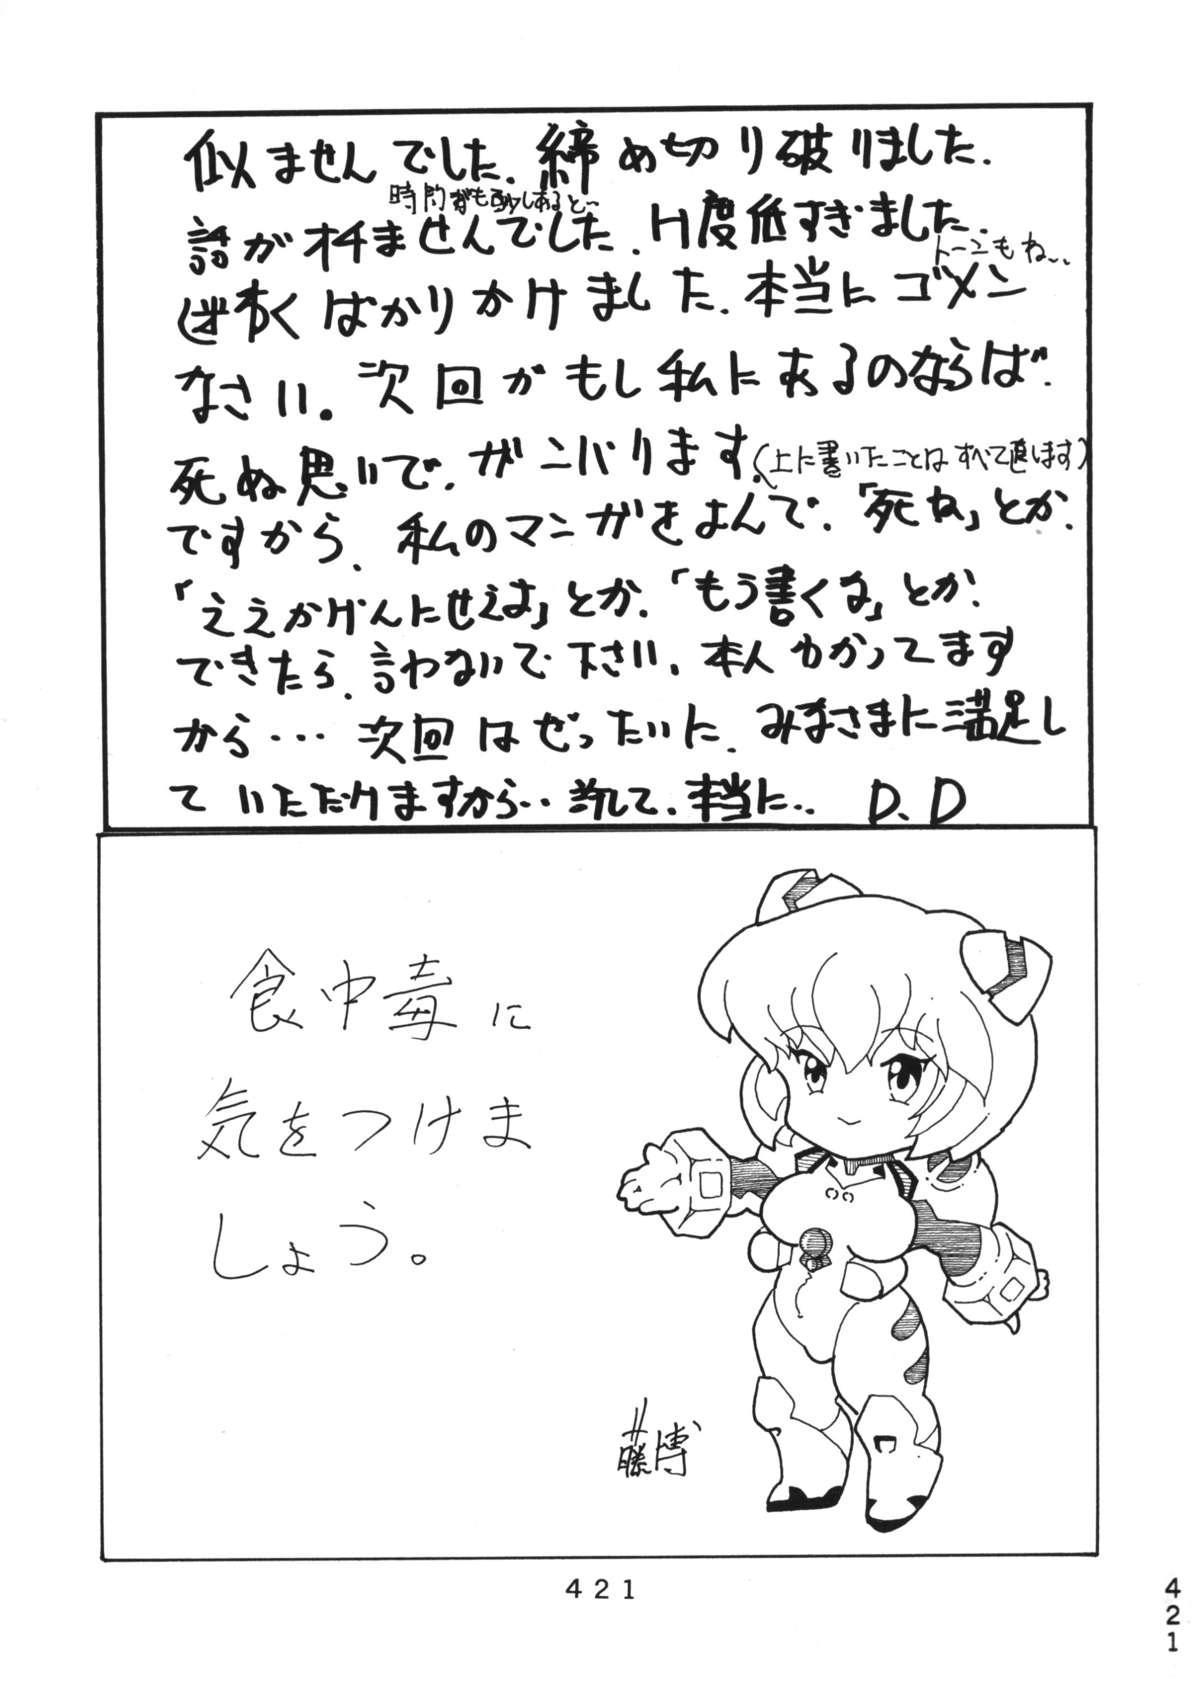 似ませんでした。締め切り破りました。
話がオチませんでした。H度低すぎました。
トーンもね...
迷惑ばかりかけました。本当にゴメン
なさい。次回がもし私にあるのならば
死ぬ思いで、ガンバります。(上に書いたことはすべて直します)
ですから、私のマンガをよんで、「死ね」とか、
「ええかげんにせえよ」とか、「もう書くな」とか、
できたら、言わないで下さい。本人わかってます
から・・・次回はぜったいに、みなさまに満足し
ていただけますから・・ 本当に.. D.D
食中毒に
気をつけま
しょう。
藤博
421
421